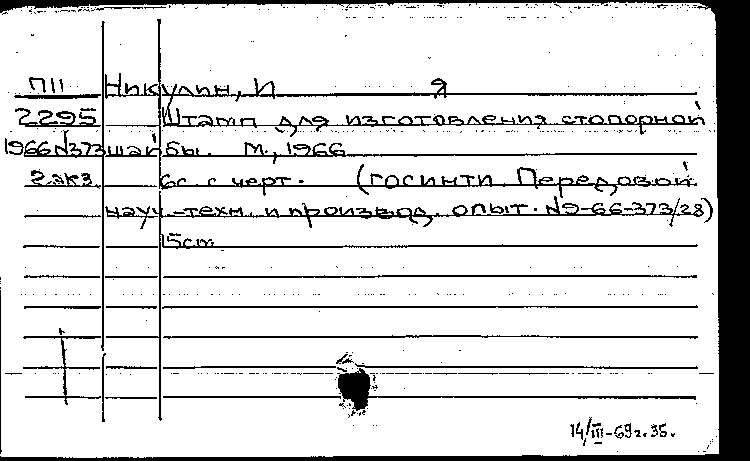 П11 Никулин, И Я
2295 Штамп для изготовления стопорной
1966 N373 шайбы. М., 1966
2 экз. 6с. с черт. (ГОСИНТИ. Передовой
науч.-техн. и производ. опыт. № 9-66-373/28)
15cm
14/III-69г. 35.